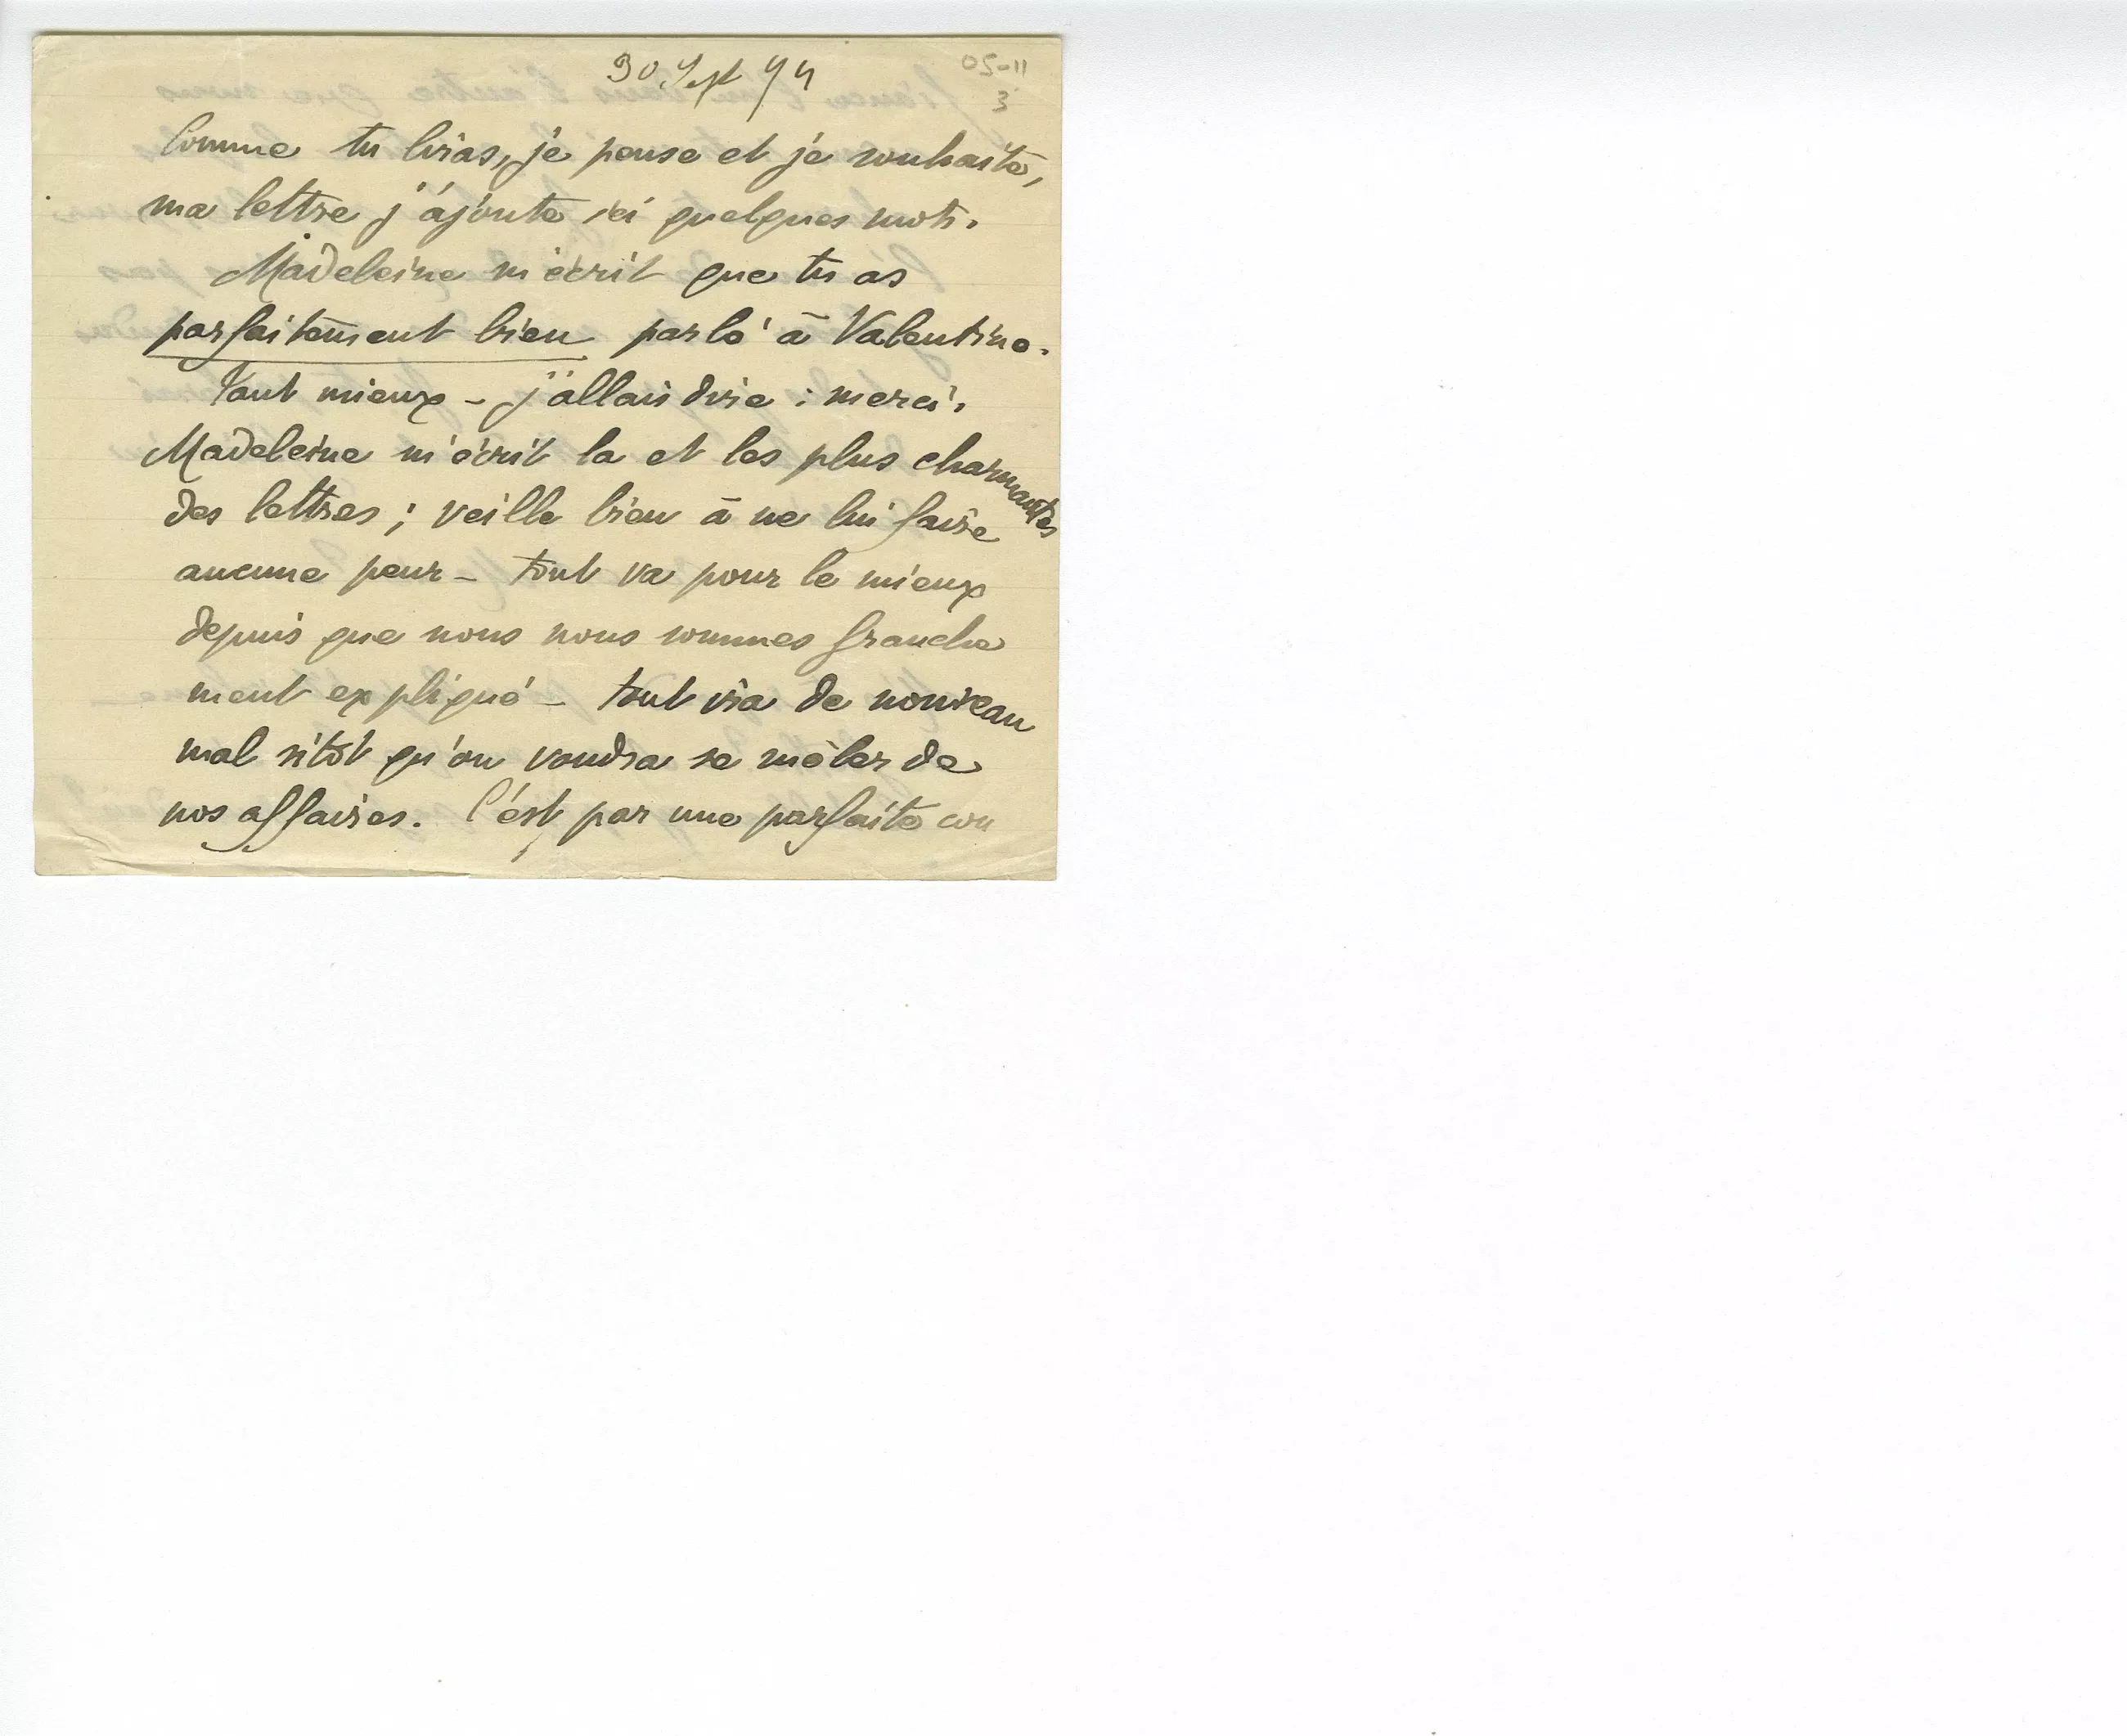 30 Sept 94
05-11
3
Comme tu liras, je pense et je souhaite,
ma lettre j'ajoute ici quelques mots.
Madeleine m'écrit que tu as
parfaitement bien parlé à Valentine.
Tant mieux – j'allais dire : merci.
Madeleine m'écrit la et les plus charmantes
des lettres ; veille bien à ne lui faire
aucune peur – tout va pour le mieux
depuis que nous nous sommes franche
ment expliqué – tout ira de nouveau
mal sitôt qu'on voudra se mêler de
nos affaires. C'est par une parfaite con